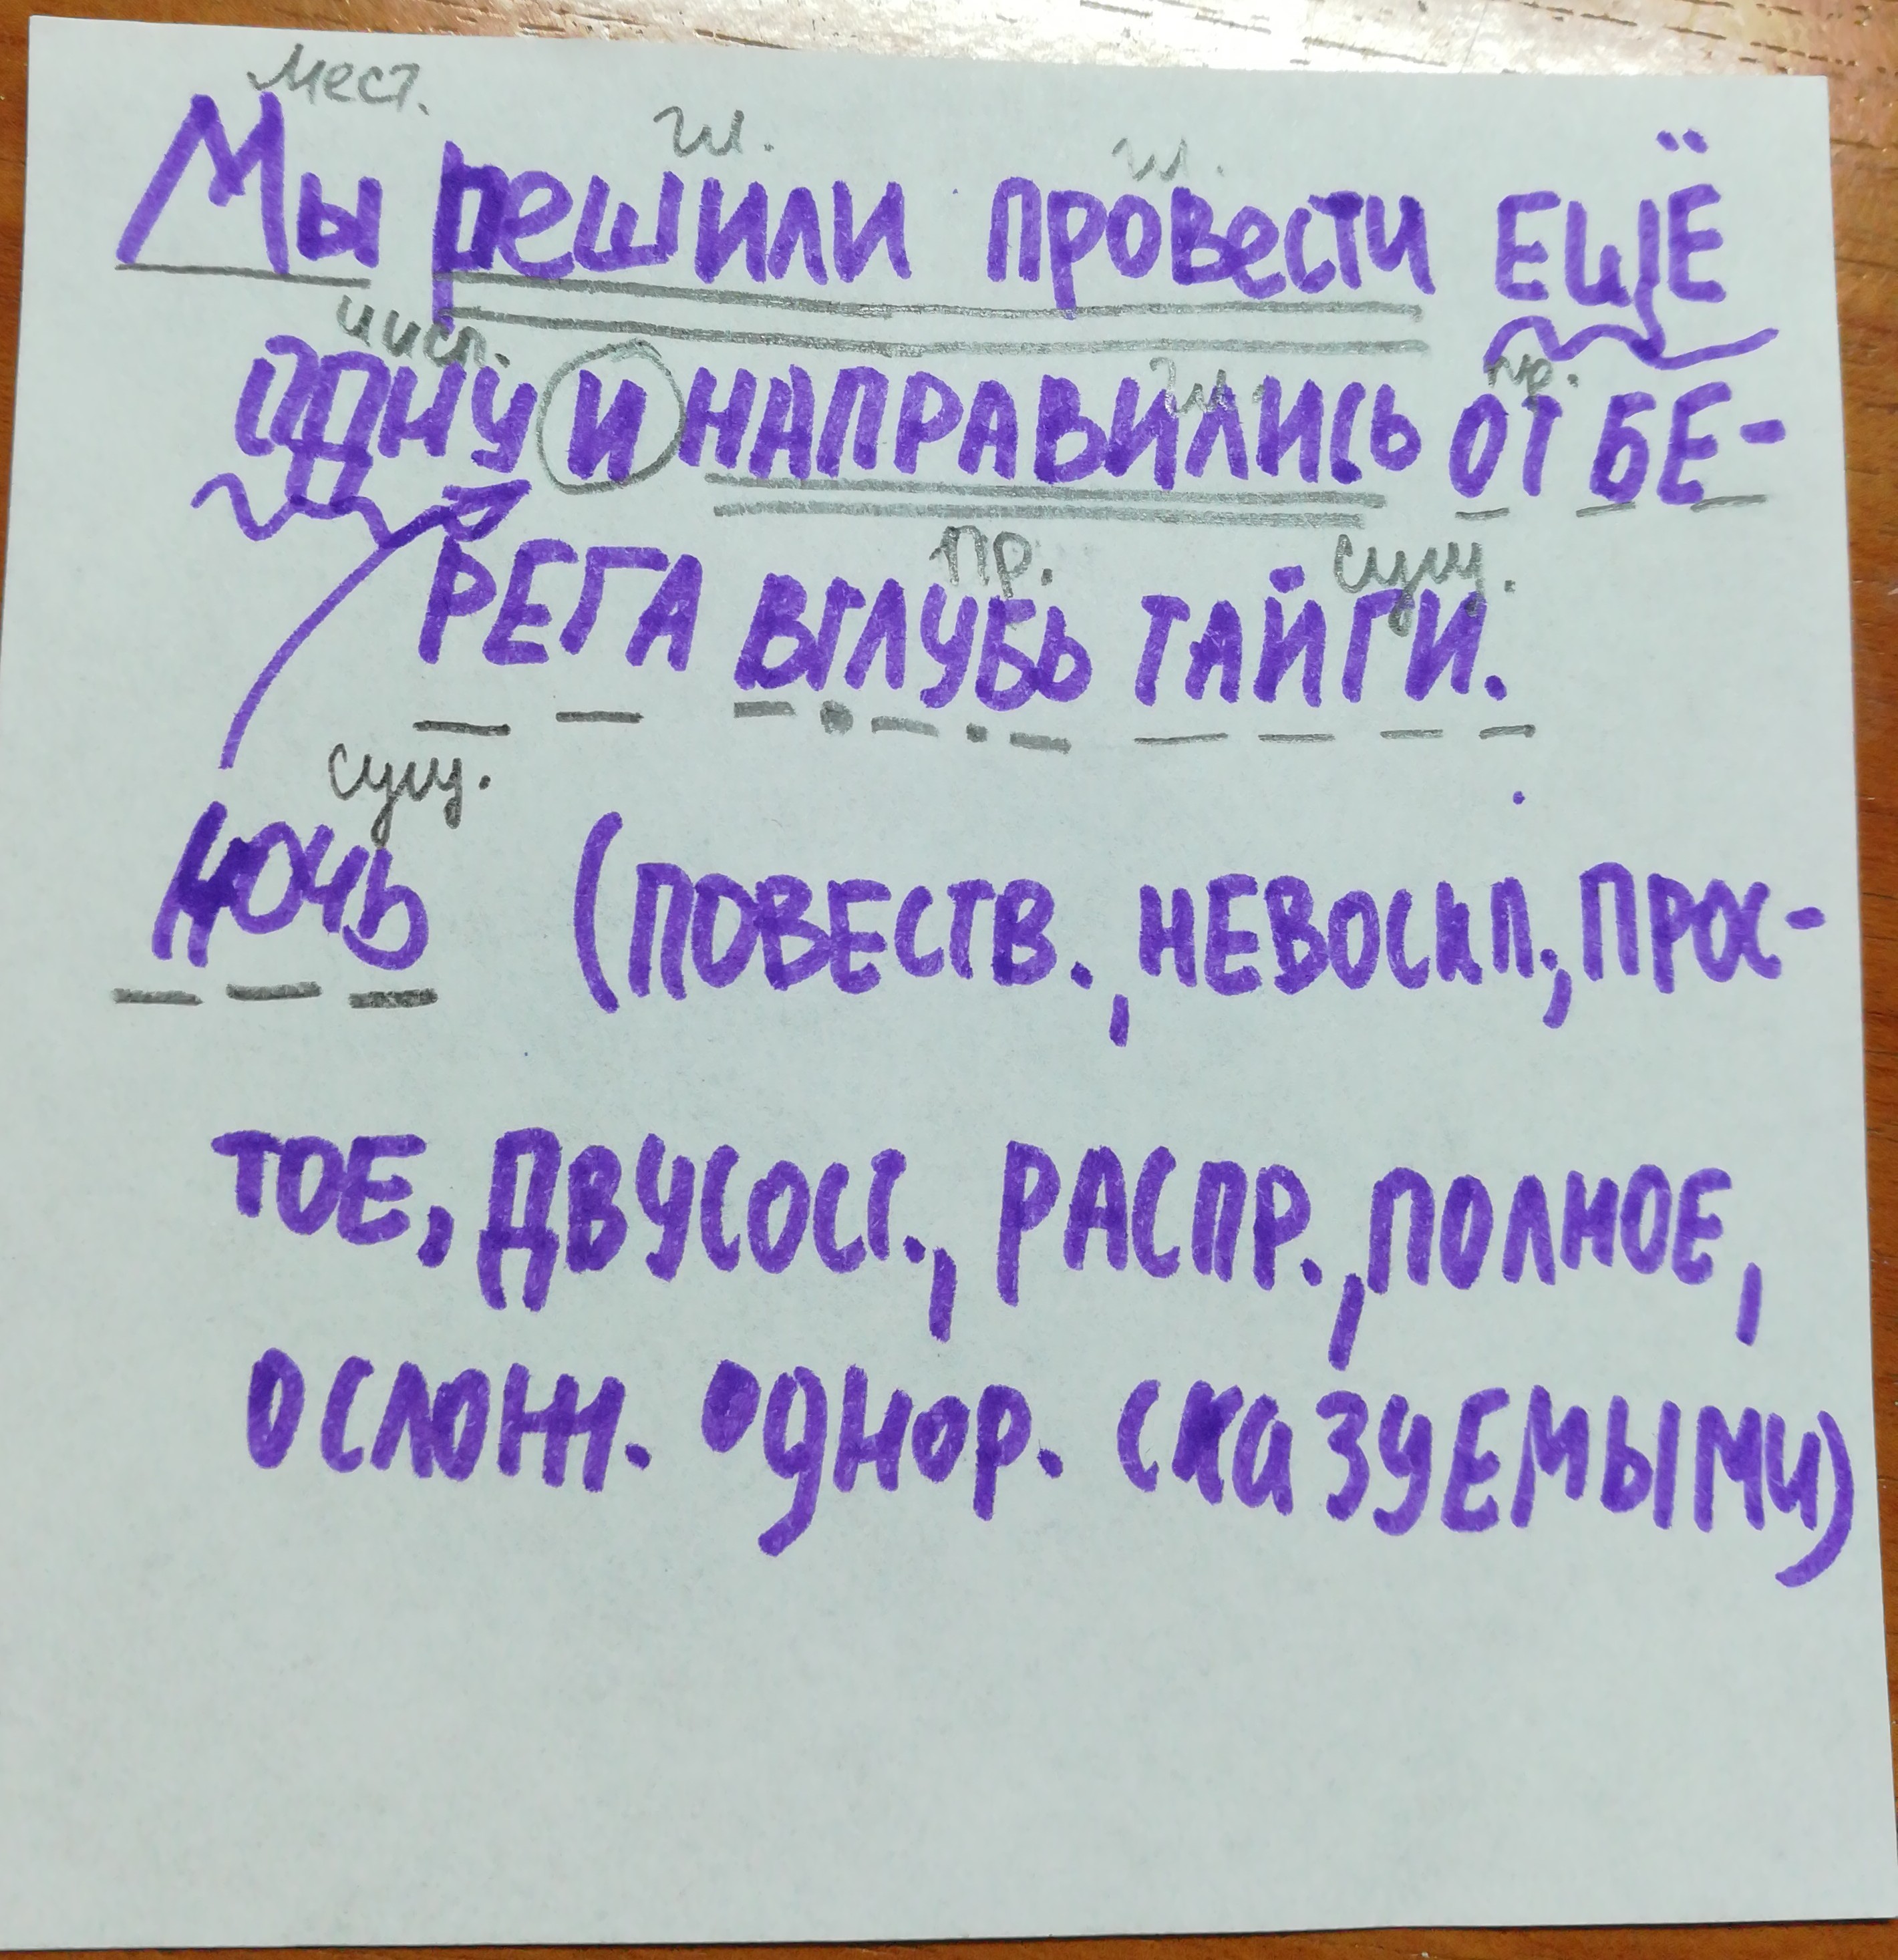 мест.
гл. гл.
Мы решили провести ЕЩЁ
числ. гл. пр.
ОДНУ И НАПРАВИЛИСЬ ОТ БЕ-
пр. сущ.
РЕГА ВГЛУБЬ ТАЙГИ.
сущ.
НОЧЬ (ПОВЕСТВ., НЕВОСКЛ., ПРОС-
ТОЕ, ДВУСОСТ., РАСПР., ПОЛНОЕ,
ОСЛОЖН. ОДНОР. СКАЗУЕМЫМИ)